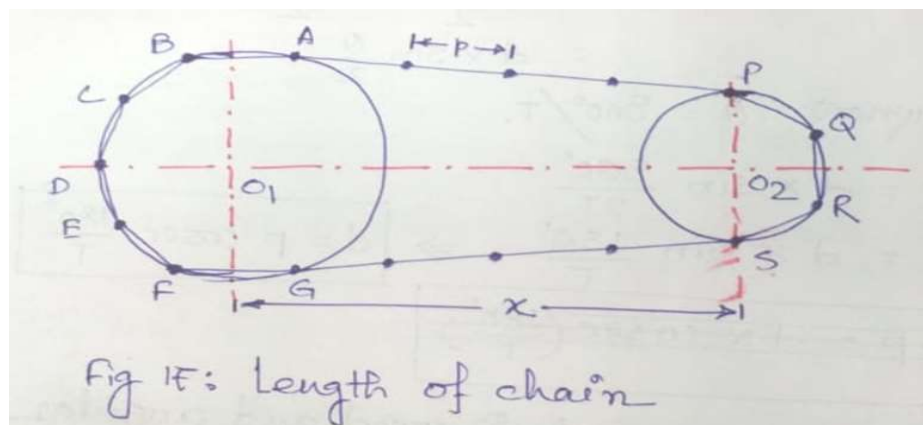 B
A
p
P
C
Q
D
O1
O2
R
E
S
F
G
x
Fig 1E: Length of chain